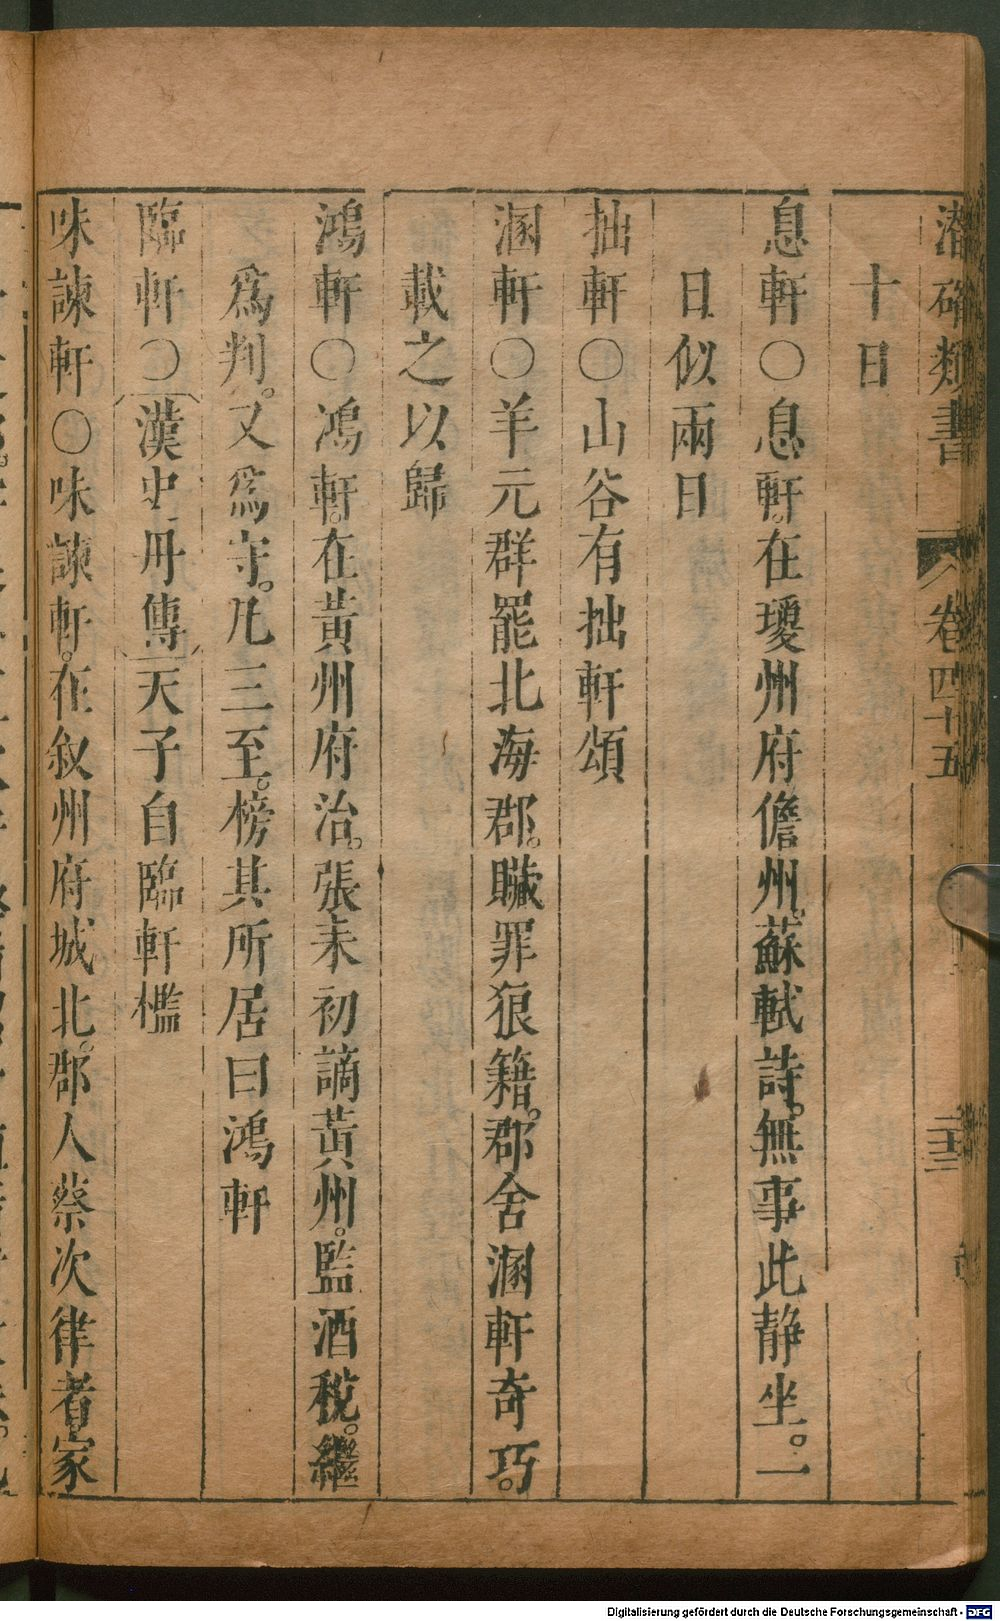 潛確類書 卷四十五 二十三
十日
息軒○息軒。在瓊州府儋州。蘇軾詩。無事此静坐。一
日似兩日
拙軒○山谷有拙軒頌
溷軒○羊元群罷北海郡。贓罪狼籍。郡舍溷軒奇巧。
載之以歸
鴻軒○鴻軒。在黃州府治。張耒初謫黃州。監酒稅。繼
爲判。又爲守。凢三至。榜其所居曰鴻軒
臨軒○漢史丹傳天子自臨軒檻
味諫軒○味諫軒。在叙州府城北。郡人蔡次律者家
Digitalisierung gefördert durch die Deutsche Forschungsgemeinschaft - DFG